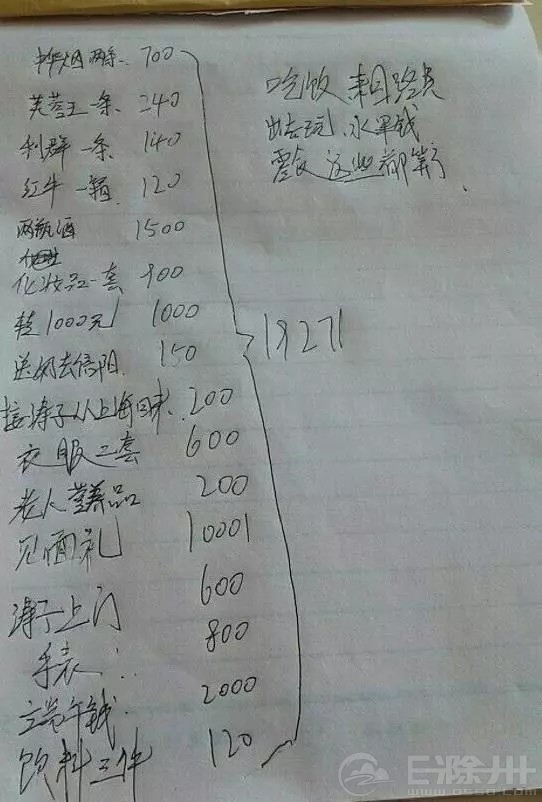 中华烟两条 700
芙蓉王一条 240
利群一条 140
红牛一箱 120
两瓶酒 1500
化妆品一套 900
转1000元 1000
送奶去信阳 150
接涛子从上海回来 200
衣服二套 600
老人营养品 200
见面礼 10001
涛子上门 600
手表: 800
端午钱 2000
饮料三件 120
19271
吃饭 来回路费
出去玩、水果钱
零食 这些都算了.
E滁州